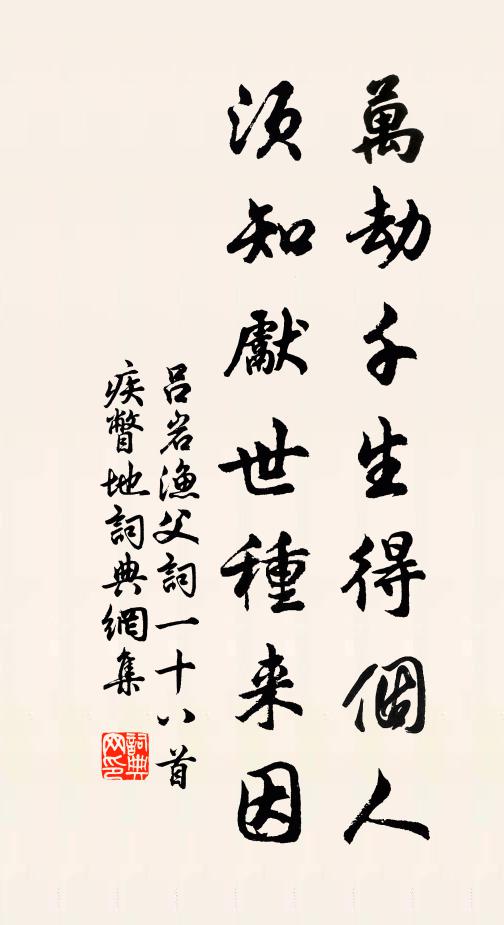 萬劫千生得個人
須知獻世種来因
呂岩漁父詞一十八首
疾瞥地詞典網集
詞典网印